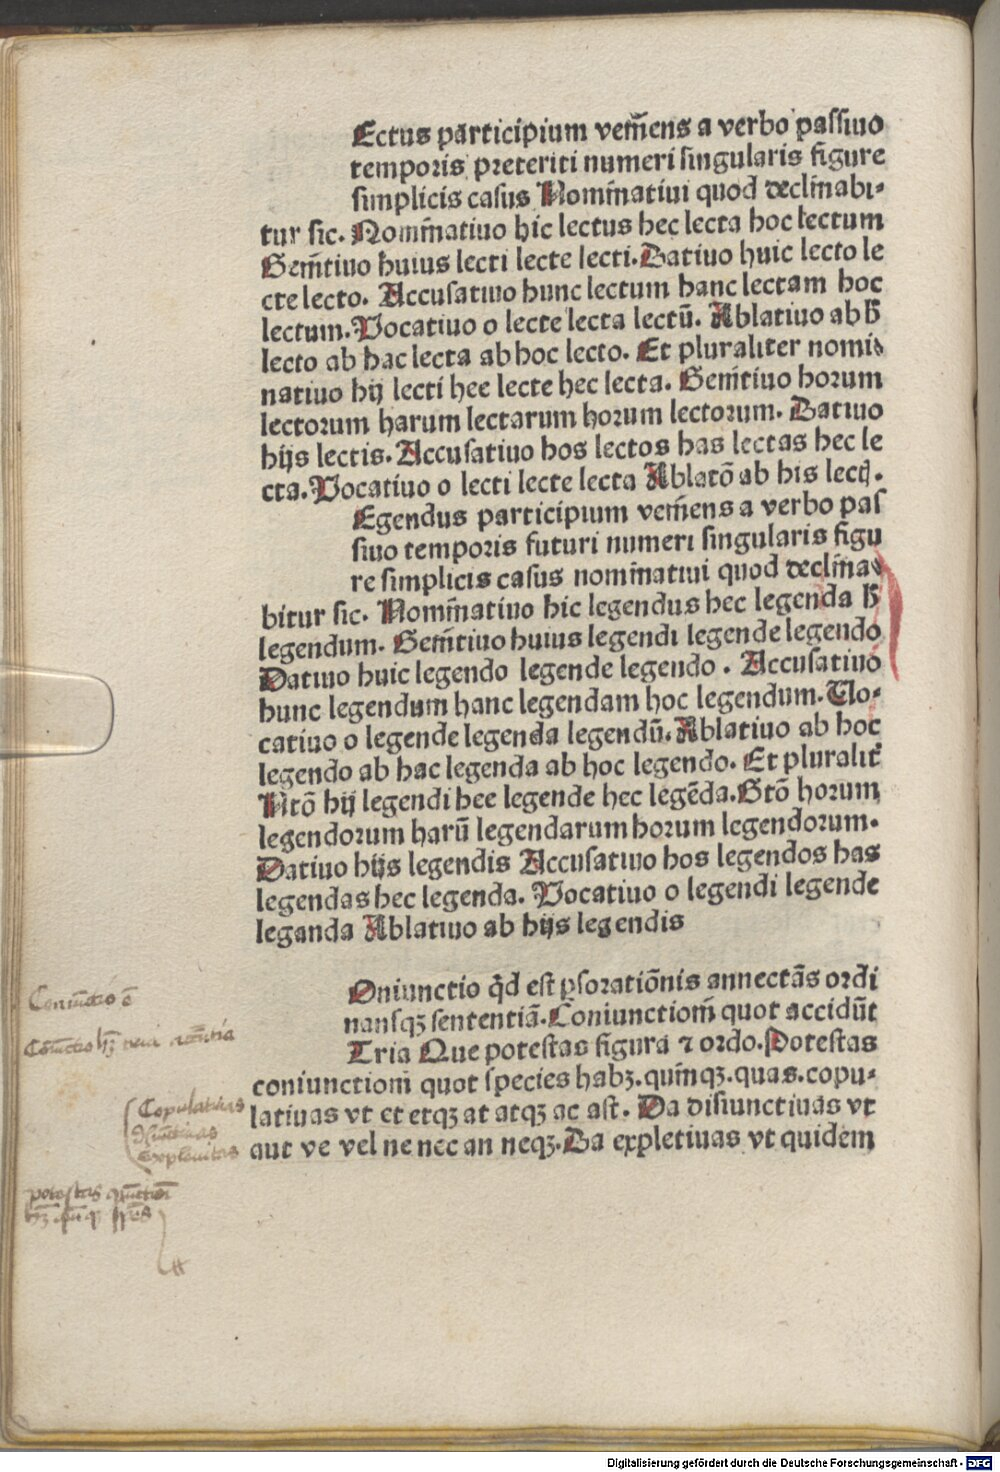 Ectus participium veniẽns a verbo passiuo
temporis preteriti numeri singularis figure
simplicis casus Nomiñatiui quod decliñabi-
tur sic. Nomiñatiuo hic lectus hec lecta hoc lectum
Geñitiuo huius lecti lecte lecti. Datiuo huic lecto le
cte lecto. Accusatiuo hunc lectum hanc lectam hoc
lectum. Vocatiuo o lecte lecta lectū. Ablatiuo ab h̄
lecto ab hac lecta ab hoc lecto. Et pluraliter nomi-
natiuo hij lecti hee lecte hec lecta. Geñitiuo horum
lectorum harum lectarum horum lectorum. Datiuo
hijs lectis. Accusatiuo hos lectos has lectas hec le
cta. Vocatiuo o lecti lecte lecta Ablatō ab his lect̄.
Egendus participium veniẽns a verbo pas
siuo temporis futuri numeri singularis figu
re simplicis casus nominatiui quod decliña-
bitur sic. Nomiñatiuo hic legendus hec legenda h̄
legendum. Geñitiuo huius legendi legende legendo
Datiuo huic legendo legende legendo. Accusatiuo
hunc legendum hanc legendam hoc legendum. Vo-
catiuo o legende legenda legendū. Ablatiuo ab hoc
legendo ab hac legenda ab hoc legendo. Et pluralit̄
Ntō hij legendi hee legende hec legēda. Gtō horum
legendorum harū legendarum horum legendorum.
Datiuo hijs legendis Accusatiuo hos legendos has
legendas hec legenda. Vocatiuo o legendi legende
leganda Ablatiuo ab hijs legendis
Oniunctio q̄d est ꝑs oratiōnis annectās ordi
nansqꝫ sententiā. Coniunctioni quot accidūt
Tria Que potestas figura ⁊ ordo. Potestas
coniunctioni quot species habꝫ. quinqꝫ. quas. copu-
latiuas vt et etqꝫ at atqꝫ ac ast. Da disiunctiuas vt
aut ve vel ne nec an neqꝫ. Da expletiuas vt quidem
Coniūctio ē
Copulatiuas
expletiuas
potestas
Digitalisierung gefördert durch die Deutsche Forschungsgemeinschaft - DFG